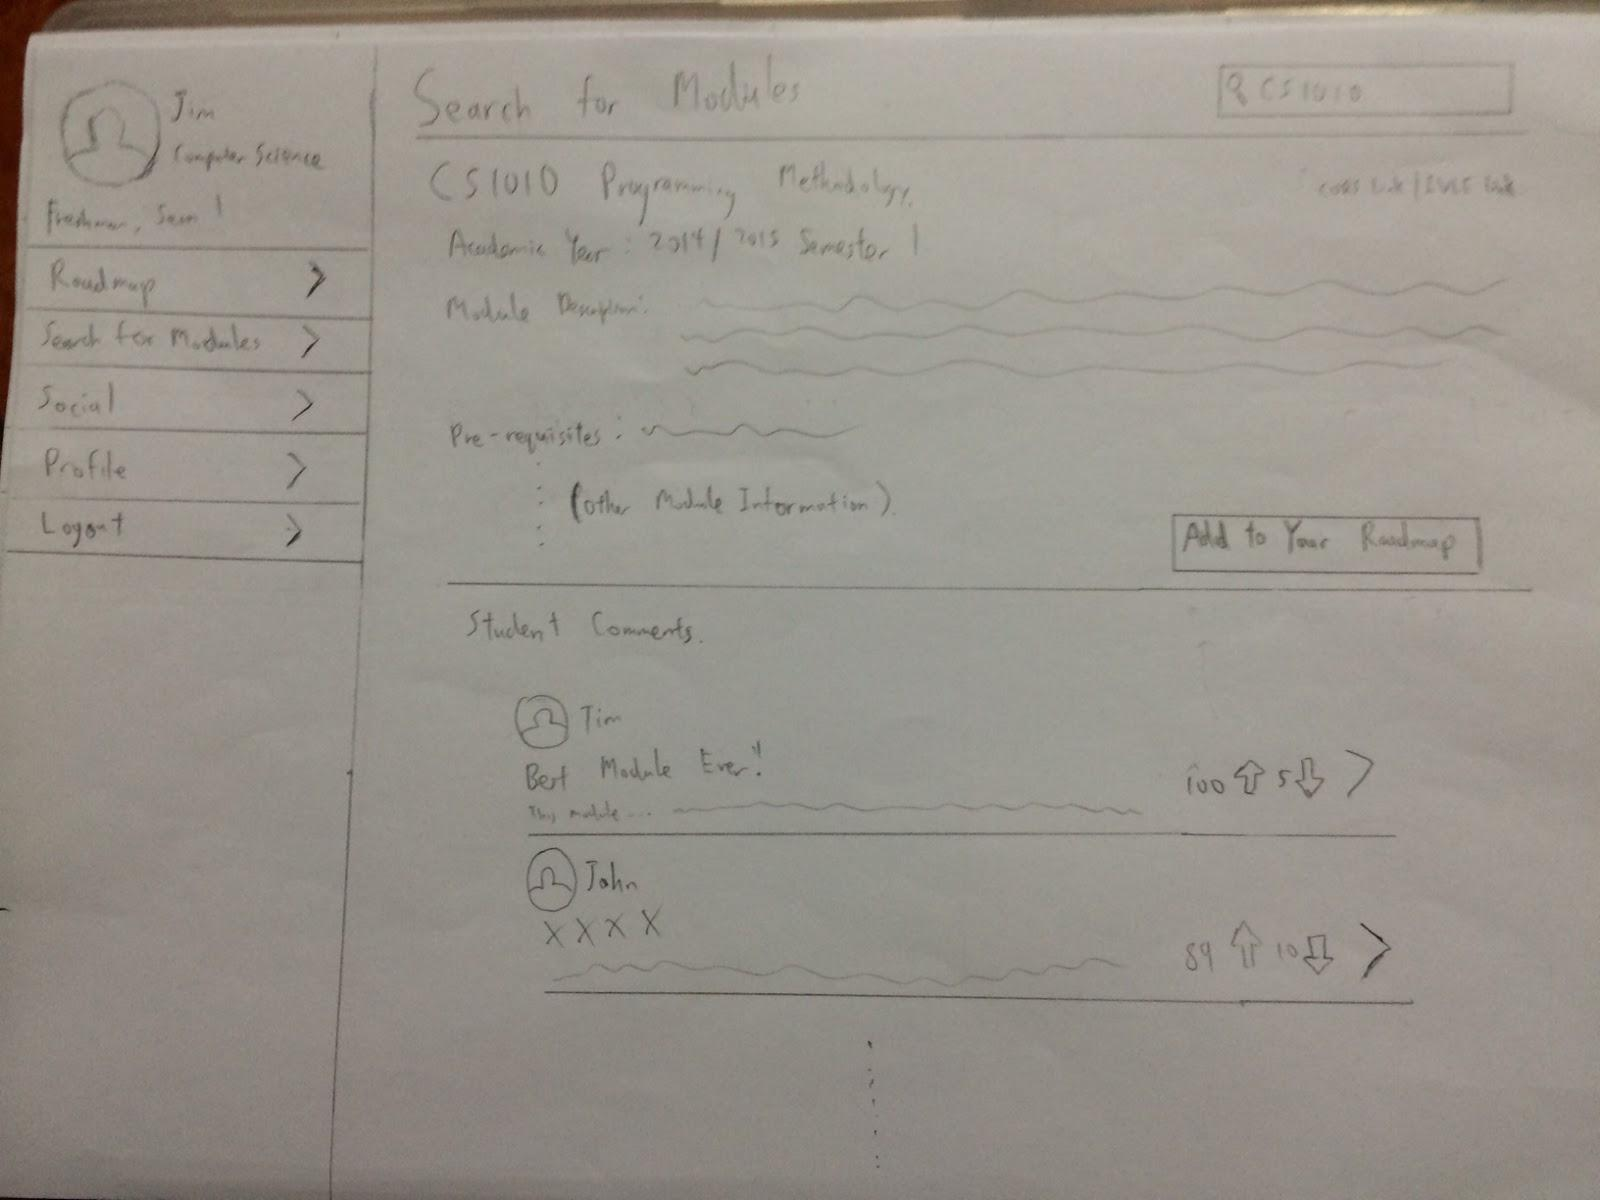 Jim
Computer Science
Freshman, Sem 1
Roadmap
Search for Modules
Social
Profile
Logout
Search for Modules
CS1010
CS1010 Programming Methodology.
CORS Link | IVLE Link
Academic Year : 2014/2015 Semester 1
Module Description:
Pre-requisites :
(other Module Information).
Add to Your Roadmap
Student Comments.
Tim
Best Module Ever!!
This module ...
100 5
John
X X X X
89 10